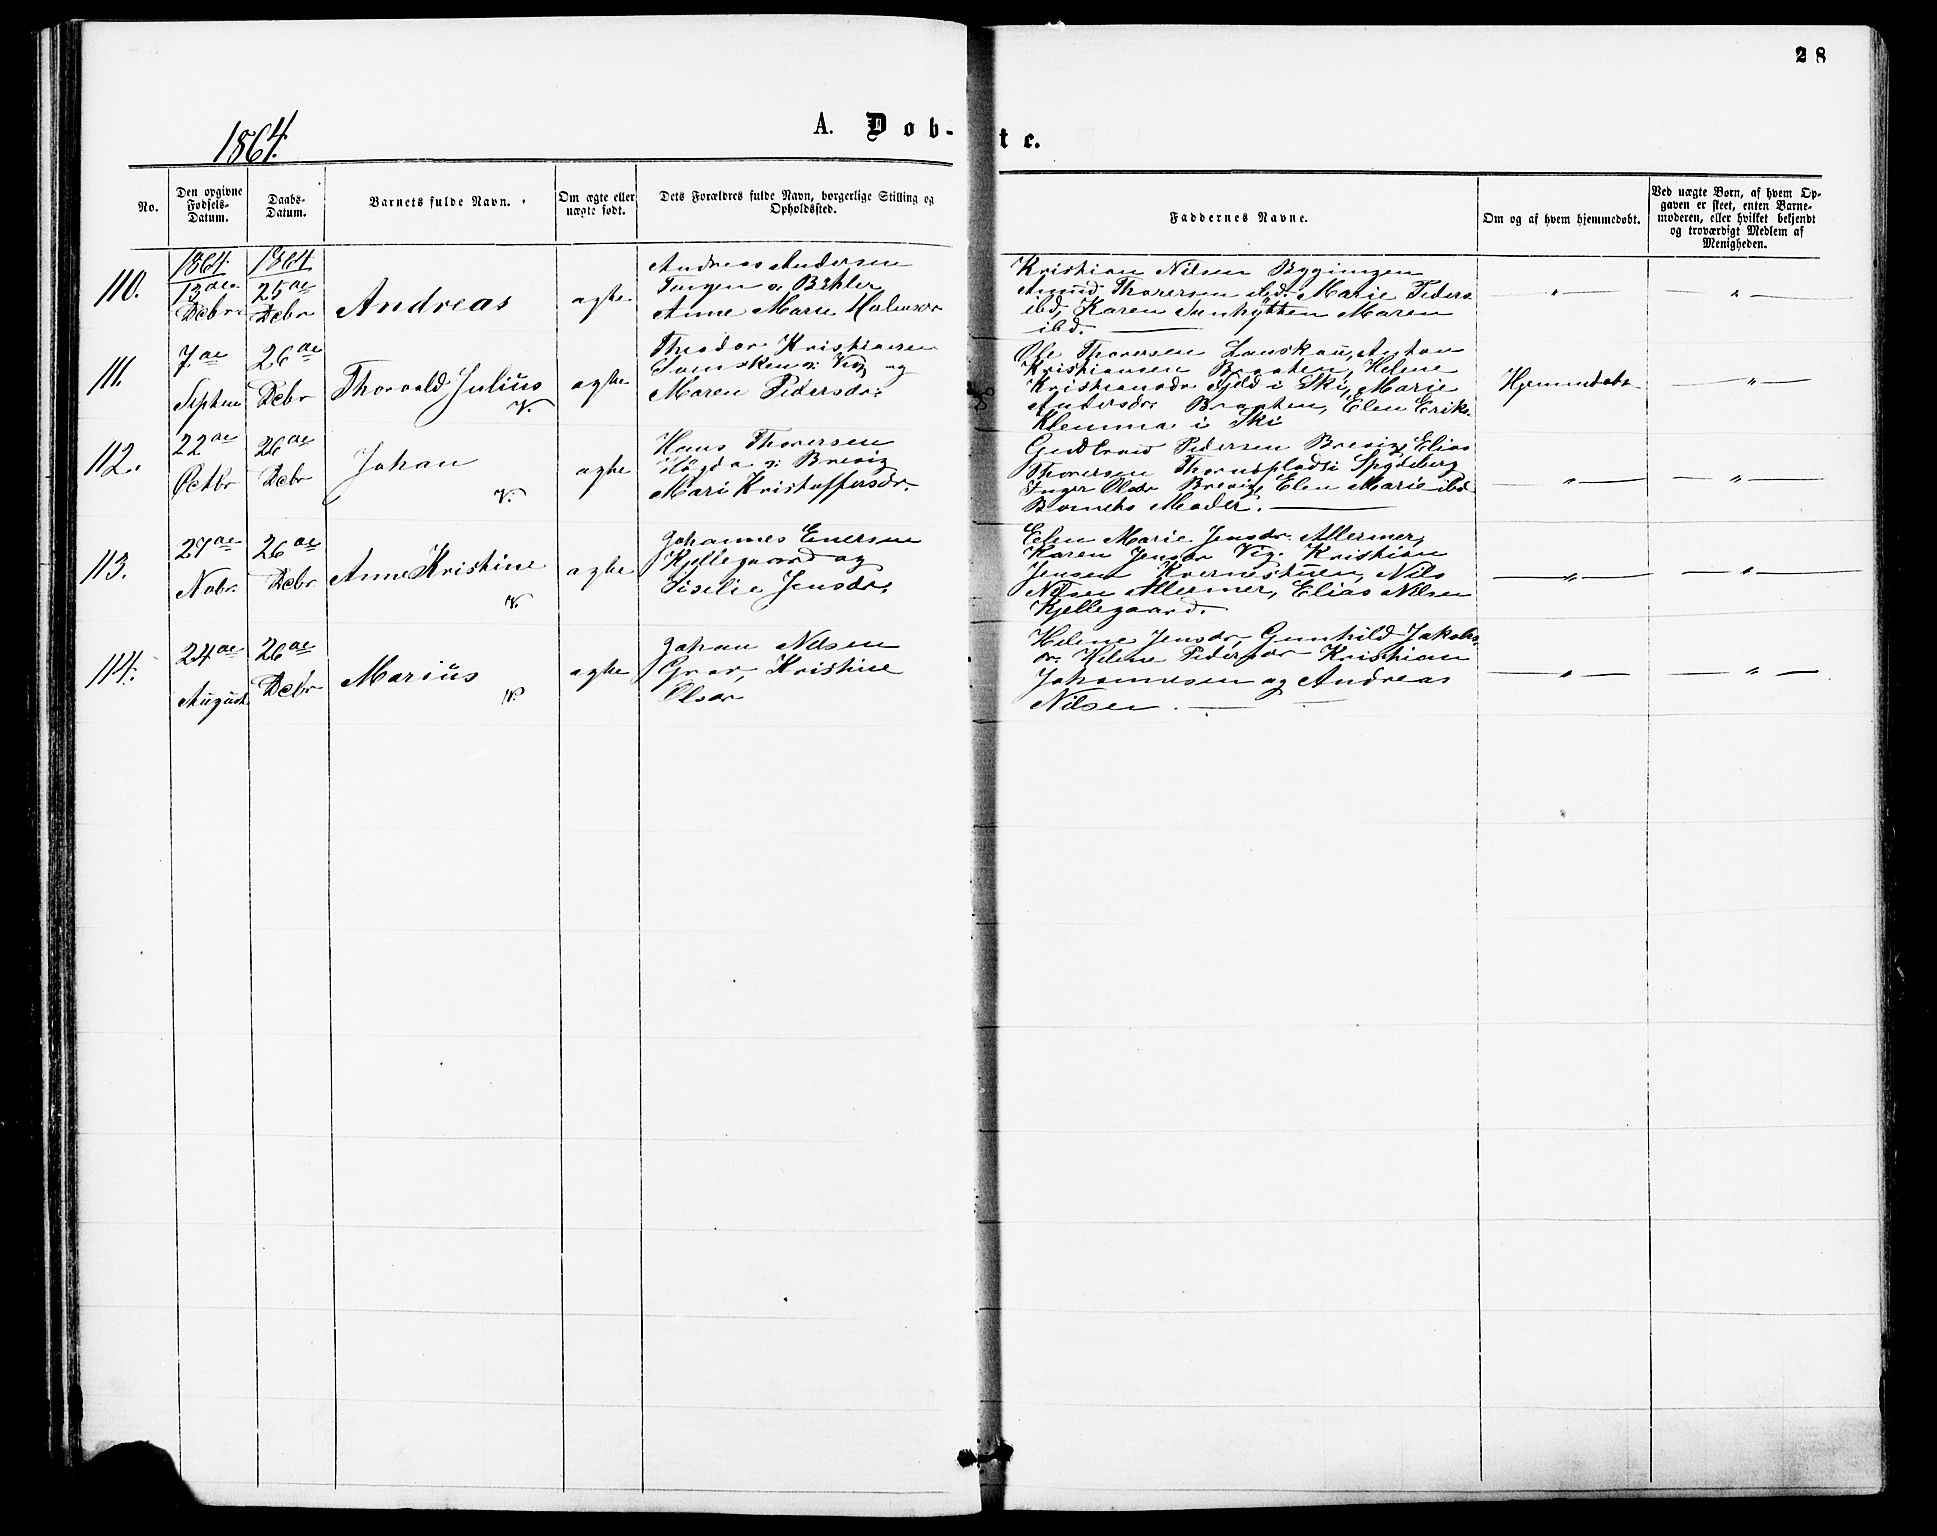 28
1864.
A. Døb-
te.
No.
Den opgivne Fødsels-Datum.
Daabs-Datum.
Barnets fulde Navn.
Om ægte eller uægte født.
Dets Forældres fulde Navn, borgerlige Stilling og Opholdssted.
Faddernes Navne.
Om og af hvem hjemmedøbt.
Ved uægte Børn, af hvem Opgaven er skeet, enten Barnemoderen, eller hvilket bekjendt og troværdigt Medlem af Menigheden.
110.
1864
13de
Debr.
1864
25de
Debr
Andreas
ægte
Andreas Andersen
Anne Marie
Kristian Nilsen Bygningen
Amund Thoresen ibd. Marie Peders
ibd, Karen Maren
ibd.
111.
7de
Septem
26de
Debr
Thorvald Julius
V.
ægte
Theodor Kristiansen
Vig og
Maren Pedersdr.
Ole Thoresen Anton
Kristiansen Braaten, Helene
Kristiansdr i Ski, Marie
Andersdr Braaten, Elen Erik
Klemma i Ski
Hjemmedøbt
112.
22de
Octbr
26de
Debr
Johan
V.
ægte
Hans Thoresen
Høgda Brevig
Mari Kristoffersdr.
Gudbrand Pedersen Brevig, Elias
Thoresen Spydeberg
Inger Olsdr Brevig, Elen Marie ibd
Barnets Moder.
113.
27de
Nobr.
26de
Debr
Anne Kristine
V.
ægte
Johannes Enersen
Kjellegaard og
Siselie Jensdr.
Elen Marie Jensdr. Allermer,
Karen Jensdr Vig. Kristian
Jensen Kvernestuen, Nils
Nilsen Allermer, Elias Nilsen
Kjellegaard.
114.
24de
August.
26de
Debr
Marius
V.
ægte
Johan Nilsen
Grav, Kristine
Olsdr
Helene Jensdr, Gunhild Jakobs
dr. Helene Pedersdr Kristian
Johannesen og Andreas
Nilsen.